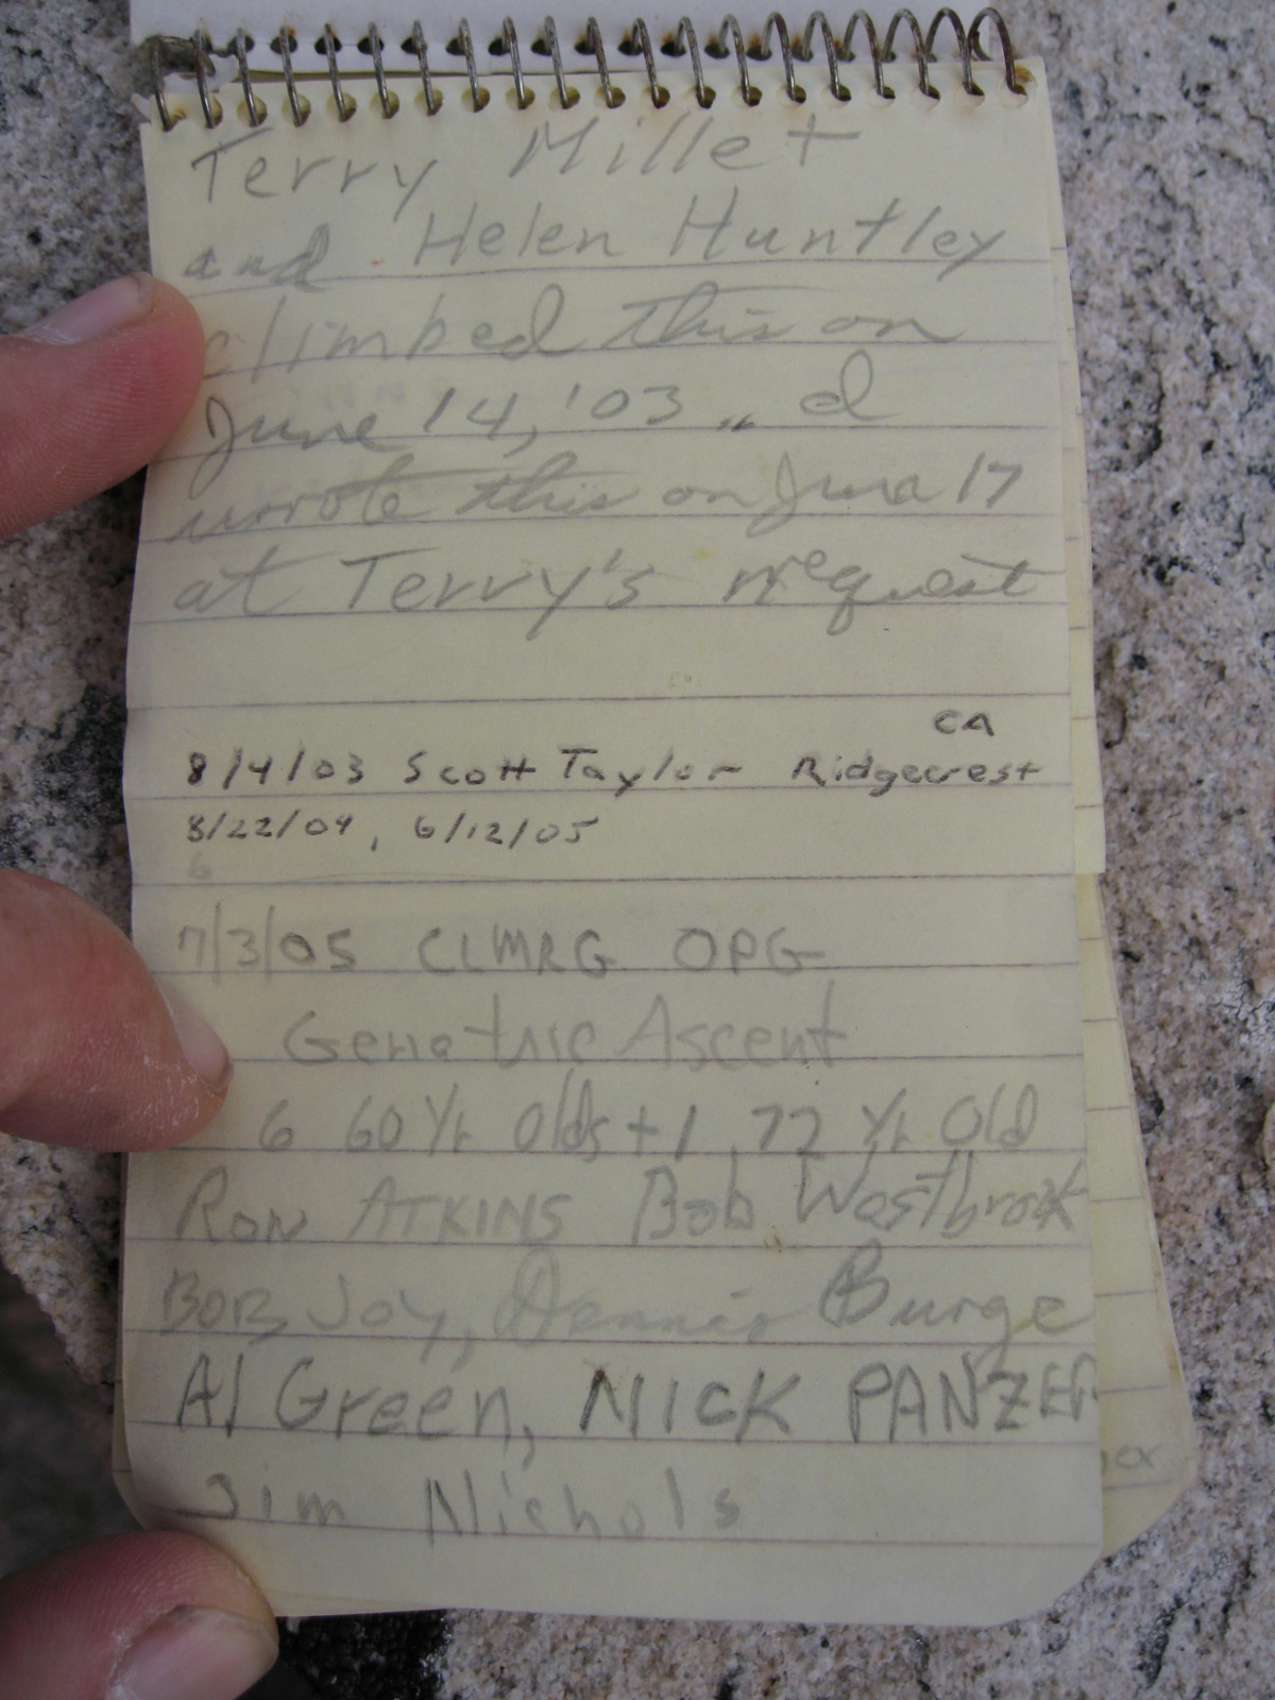 Terry Millet
and Helen Huntley
climbed this on
June 14, '03 ,, I
wrote this on June 17
at Terry's request
CA
8/4/03 Scott Taylor Ridgecrest
8/22/04, 6/12/05
6
7/3/05 CLMRG OPG
Geriatric Ascent
6 60 Yr Olds + 1 72 Yr Old
RON ATKINS Bob Westbrook
BOB Joy, Dennis Burge
Al Green, NICK PANZER
Jim Nichols